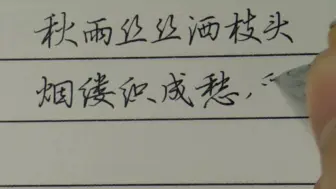 秋雨丝丝洒枝头
烟缕织成愁,